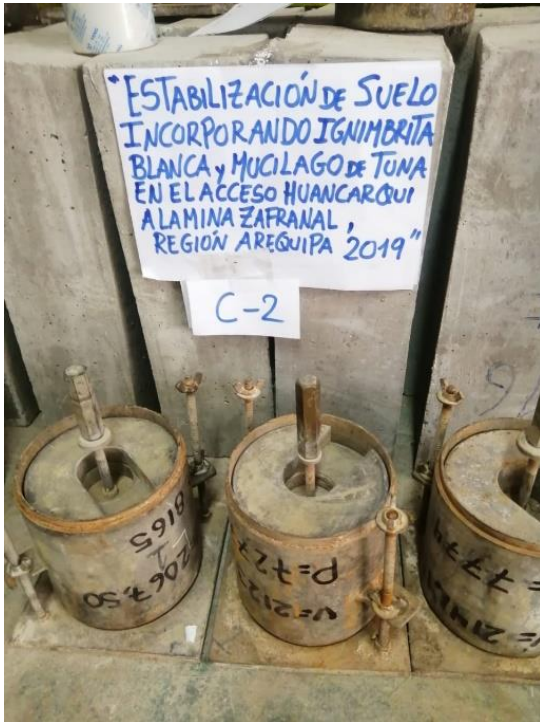 "ESTABILIZACIÓN DE SUELO
INCORPORANDO IGNIMBRITA
BLANCA y MUCILAGO DE TUNA
EN EL ACCESO HUANCARQUI
A LA MINA ZAFRANAL,
REGIÓN AREQUIPA, 2019"
C-2
8165
1
2067,50
P=727
V=212
=7774